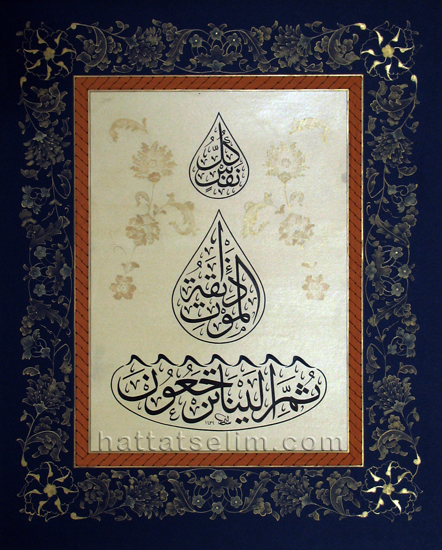 كُلُّ نَفْسٍ
ذَائِقَةُ الْمَوْتِ
ثُمَّ إِلَيْنَا تُرْجَعُونَ
hattatselim.com